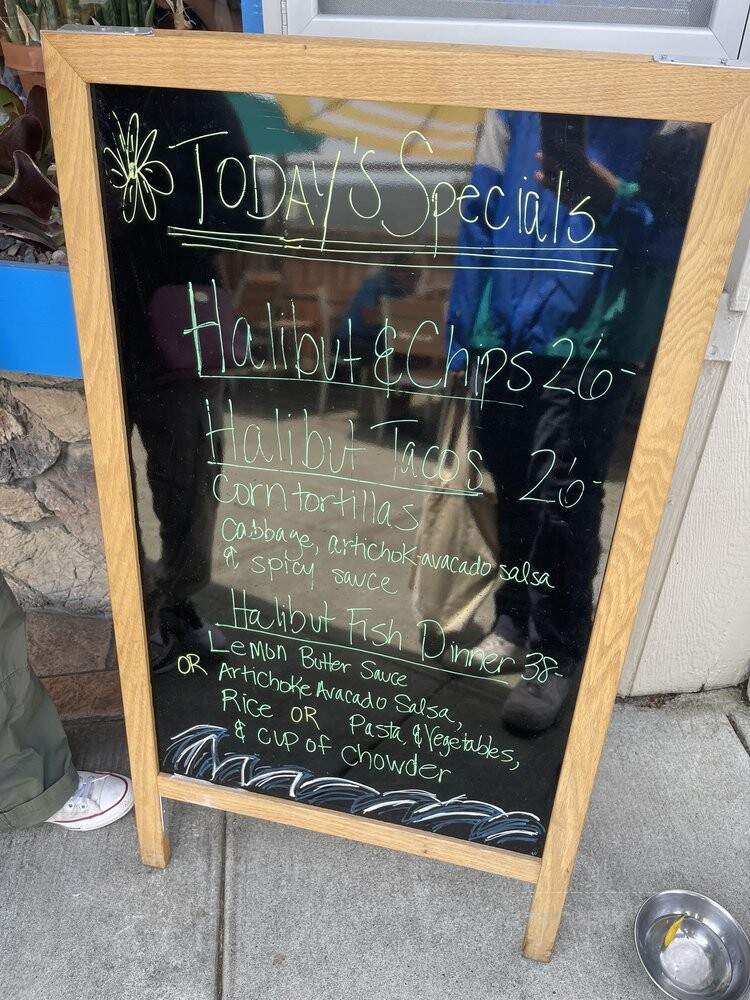 Today's Specials
Halibut & Chips 26-
Halibut Tacos 26-
Corn tortillas
cabbage, artichok-avacado salsa
& spicy sauce
Halibut Fish Dinner 38-
Lemon Butter Sauce
OR Artichoke Avacado Salsa,
Rice OR Pasta, & Vegetables,
& CUP OF Chowder